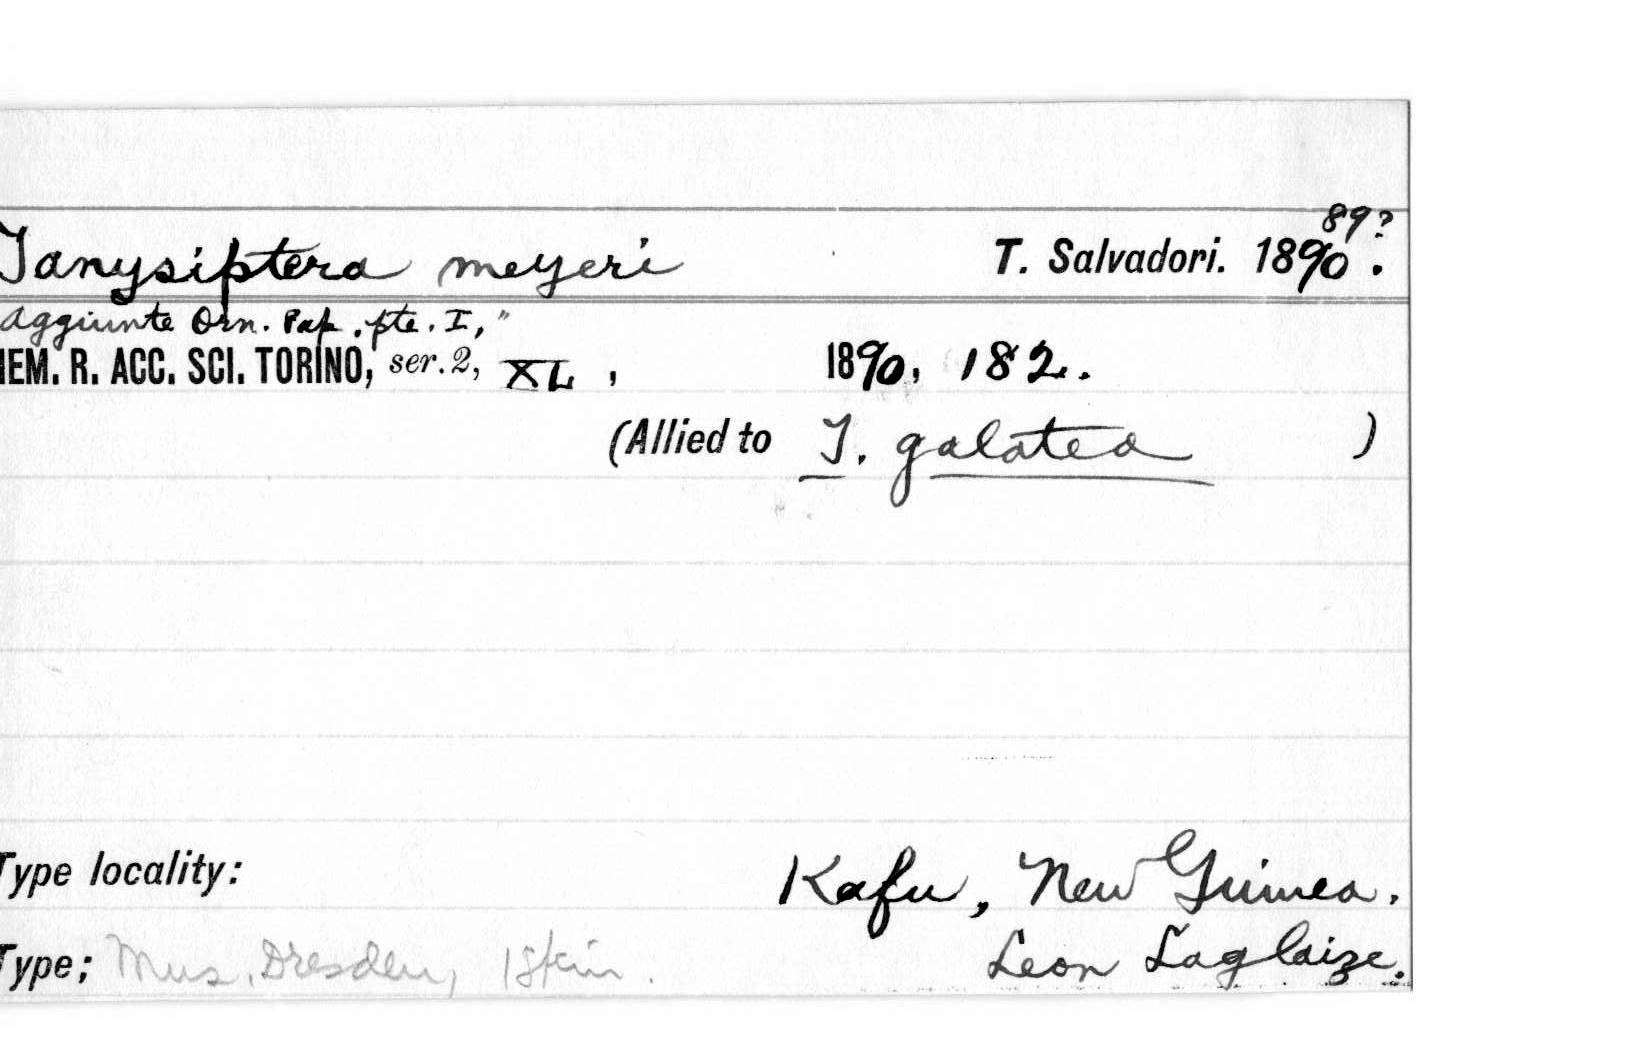 Tanysiptera meyeri T. Salvadori. 1890. 89?
Aggiunte Orn. Pap. pte. I,"
IEM. R. ACC. SCI. TORINO, ser. 2, XL, 1890, 182.
(Allied to T. galatea )
Type locality: Kafu, New Guinea.
Type; Mus. Dresden, 1 skin. Leon Laglaize.